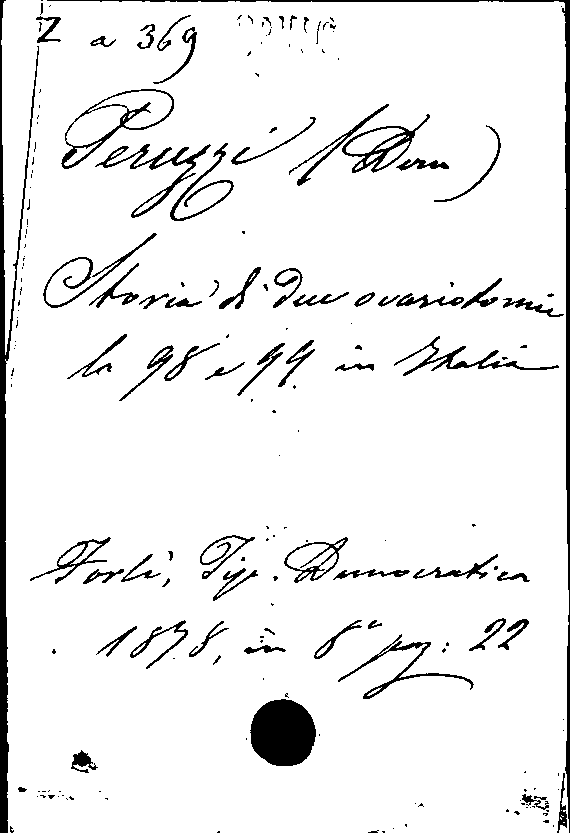 Z a 369
Peruzzi (Dom)
Storia di due ovariotomie
la 98 e 99 in Italia
Forlì, Tip. Democratica
1878, in 8° pag: 22